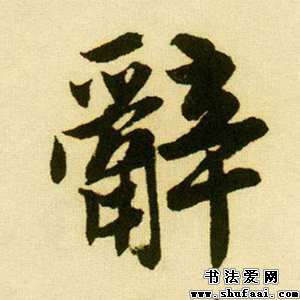 辭
书法爱网
www.shufaai.com